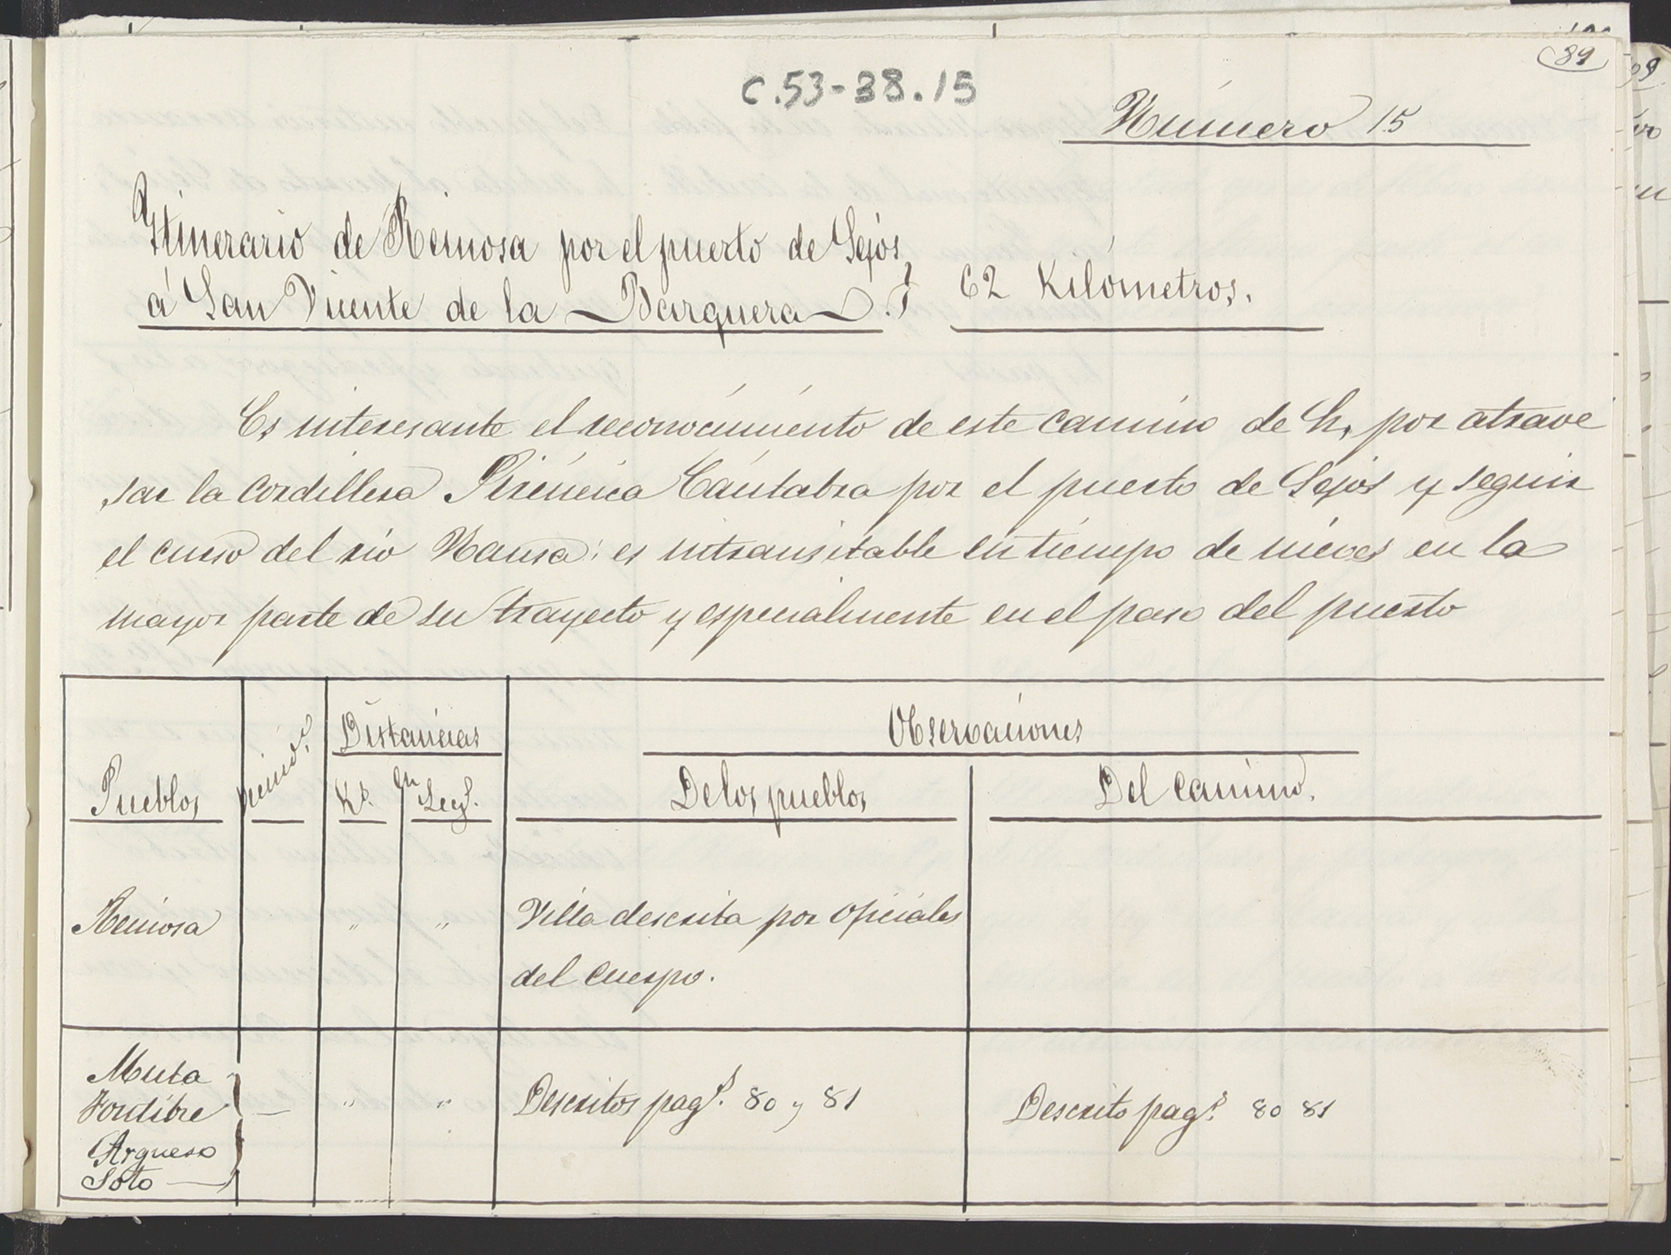 89
C.53-38.15
Número 15
Itinerario de Reinosa por el puerto de Sejos
á San Vicente de la Barquera 62 Kilómetros.
Es interesante el reconocimiento de este camino de h, por atrave
sar la cordillera Pirenéica Cántabra por el puerto de Sejos y seguir
el curso del rio Nansa: es intransitable en tiempo de nieves en la
mayor parte de su trayecto y especialmente en el paso del puerto
Pueblos Vecinos Distancias Observaciones
Ks. en Legs. De los pueblos Del camino.
Reinosa " " Villa descrita por oficiales
del cuerpo.
Fontibre
Argueso
Soto
— " " Descritos pags. 80 y 81 Descrito pags. 80 81